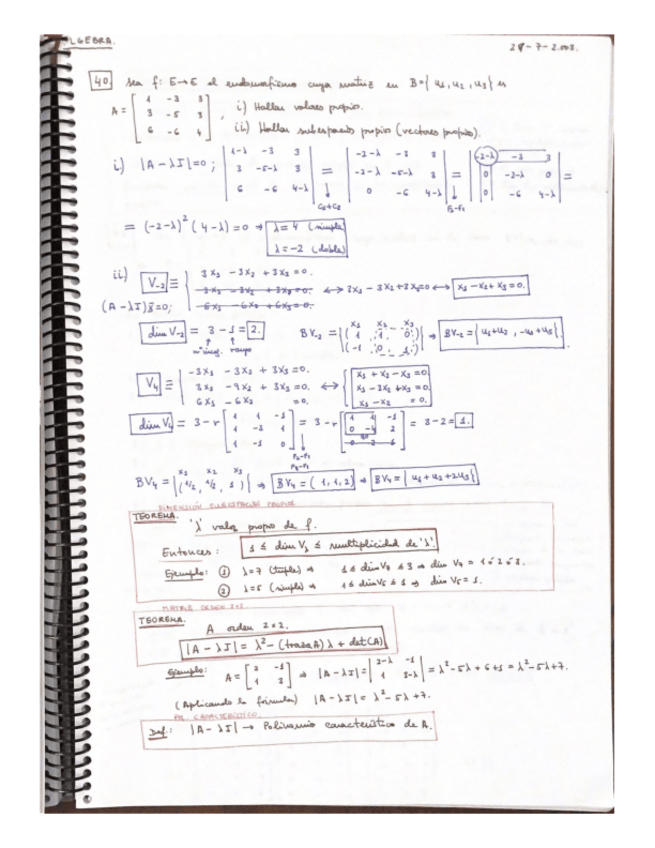 ALGEBRA. 27-7-2.003.
40. Sea f: E→E el endomorfismo cuya matriz en B={u₁,u₂,u₃} es
A = [1 -3 3; 3 -5 3; 6 -6 4], i) Hallar valores propios.
ii) Hallar subespacios propios (vectores propios).
i) |A - λI| = 0 ; |1-λ -3 3; 3 -5-λ 3; 6 -6 4-λ| = C₁+C₂ |-2-λ -3 3; -2-λ -5-λ 3; 0 -6 4-λ| = F₂-F₁ |-2-λ -3 3; 0 -2-λ 0; 0 -6 4-λ| =
= (-2-λ)² (4-λ) = 0 ⇒ λ = 4 (simple)
λ = -2 (doble)
ii) V₋₂ ≡ { 3x₁ - 3x₂ + 3x₃ = 0.
(A-λI)x̄=0; 3x₁ - 3x₂ + 3x₃ = 0. ↔ 3x₁ - 3x₂ + 3x₃ = 0 ↔ x₁ - x₂ + x₃ = 0.
6x₁ - 6x₂ + 6x₃ = 0.
dim V₋₂ = 3 - 1 = 2. BV₋₂ = {x₁ x₂ x₃ (1, 1, 0) (-1, 0, 1)} ⇒ BV₋₂ = {u₁+u₂, -u₁+u₃}.
nº incg. rango
V₄ ≡ { -3x₁ - 3x₂ + 3x₃ = 0.
3x₁ - 9x₂ + 3x₃ = 0. ↔ { x₁ + x₂ - x₃ = 0. x₁ - 3x₂ + x₃ = 0. x₁ - x₂ = 0.
6x₁ - 6x₂ = 0.
dim V₄ = 3 - r [1 1 -1; 1 -3 1; 1 -1 0] = 3 - r [1 1 -1; 0 -4 2; 0 -2 1] = 3 - 2 = 1.
F₂-F₁
F₃-F₁
BV₄ = {x₁ x₂ x₃ (1/2, 1/2, 1)} ⇒ BV₄ = (1, 1, 2) ⇒ BV₄ = {u₁ + u₂ + 2u₃}
DIMENSIÓN SUBESPACIO PROPIO
TEOREMA.
'λ' valor propio de f.
Entonces: 1 ≤ dim V_λ ≤ multiplicidad de 'λ'.
Ejemplo: ① λ=7 (triple) ⇒ 1 ≤ dim V₇ ≤ 3 ⇒ dim V₇ = 1 ó 2 ó 3.
② λ=5 (simple) ⇒ 1 ≤ dim V₅ ≤ 1 ⇒ dim V₅ = 1.
MATRIZ ORDEN 2x2
TEOREMA.
A orden 2x2.
|A - λI| = λ² - (traza A) λ + det(A)
Ejemplo: A = [2 -1; 1 3] ⇒ |A - λI| = |2-λ -1; 1 3-λ| = λ² - 5λ + 6 + 1 = λ² - 5λ + 7.
(Aplicando la fórmula) |A - λI| = λ² - 5λ + 7.
POL. CARACTERÍSTICO.
Def.: |A - λI| → Polinomio característico de A.